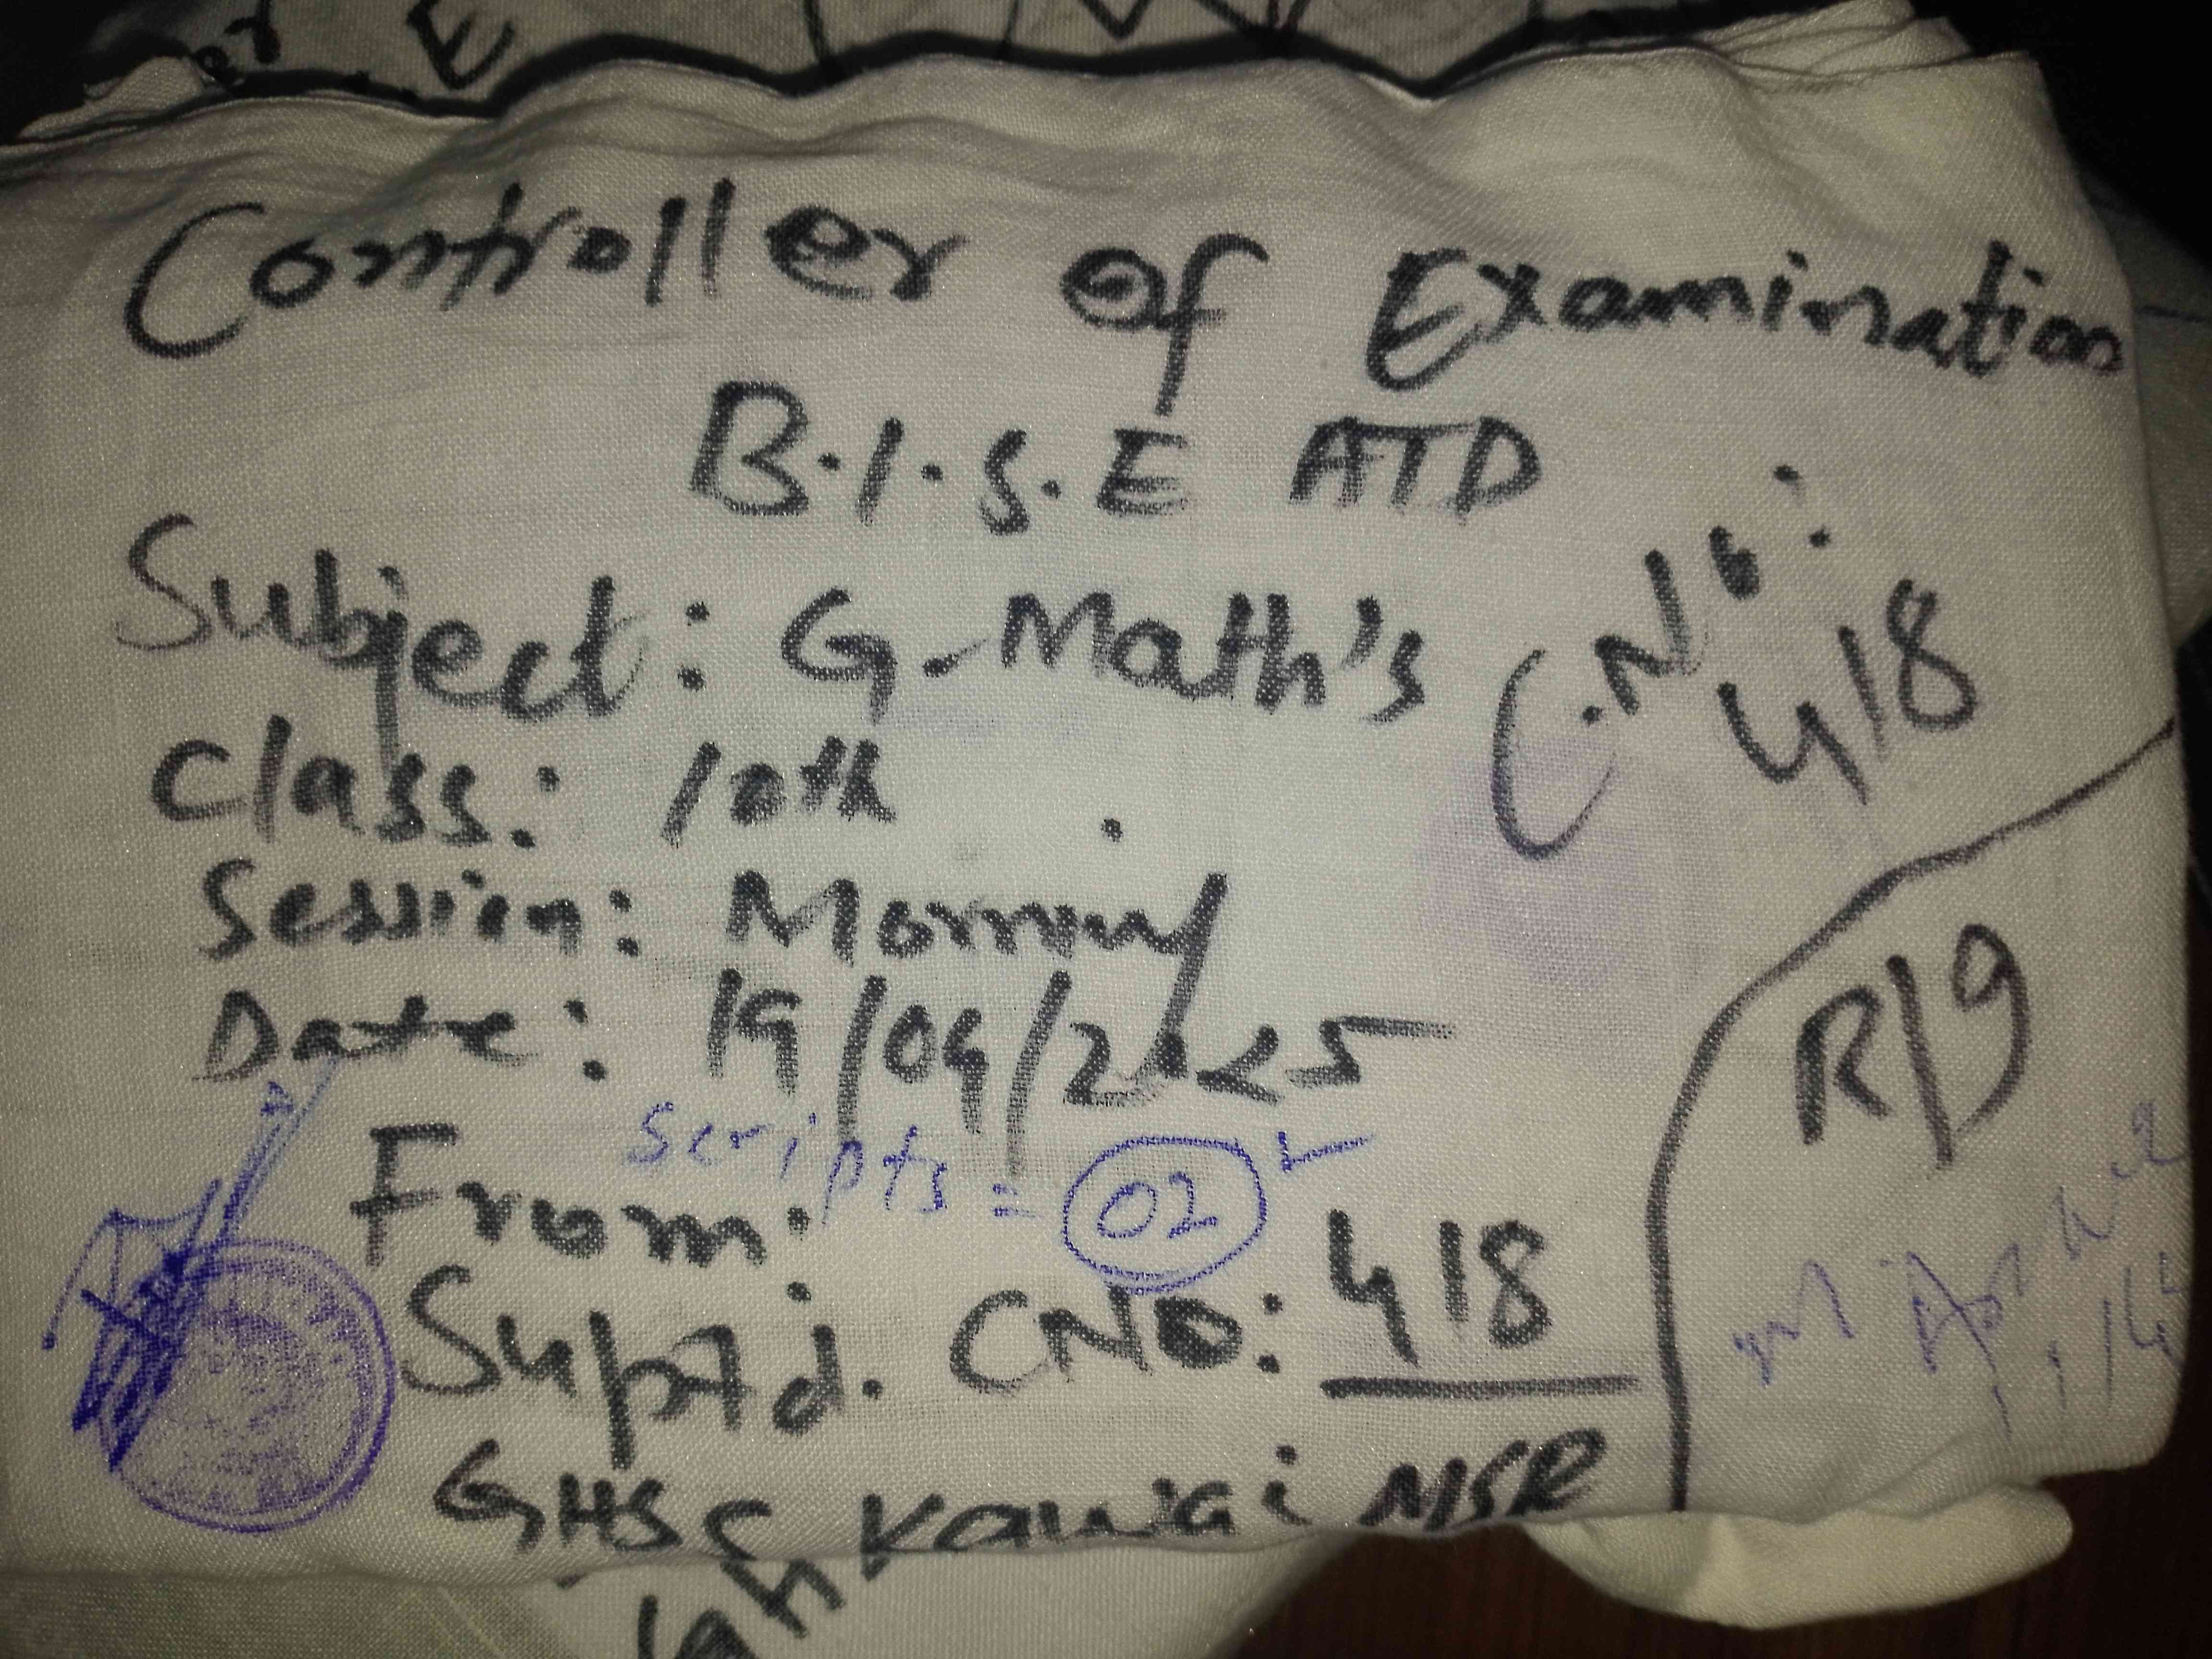 Controller of Examination
B.I.S.E ATD
C.No:
418
Subject: G-Math's
Class: 10th
Session: Morning
Date: 19/04/2025
scripts = 02
R/9
From:
Suptd. CNO: 418
GHSS Kawai MSR